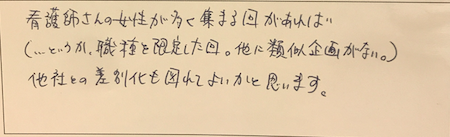 看護師さんの女性が多く集まる回があれば
(…というか、職種を限定した回。他に類似企画がない。)
他社との差別化も図れてよいかと思います。